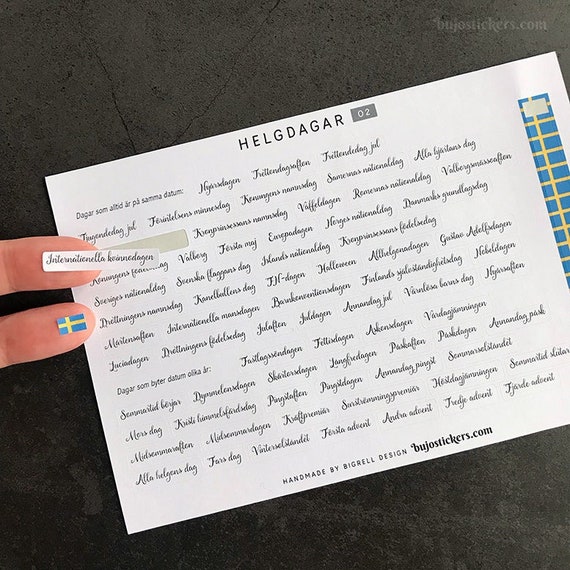 bujostickers.com
HELGDAGAR 02
Dagar som alltid är på samma datum: Nyårsdagen Trettondagsafton Trettondedag jul
Tjugondedag jul Förintelsens minnesdag Konungens namnsdag Samernas nationaldag Alla hjärtans dag
Kronprinsessans namnsdag Våffeldagen Romernas nationaldag Valborgsmässoafton
Internationella kvinnodagen
Konungens födelsedag Valborg Första maj Europadagen Norges nationaldag Danmarks grundlagsdag
Sveriges nationaldag Svenska flaggans dag Islands nationaldag Kronprinsessans födelsedag
Drottningens namnsdag Kanelbullens dag FN-dagen Halloween Allhelgonadagen Gustav Adolfsdagen
Mårtensafton Internationella mansdagen Barnkonventionsdagen Finlands självständighetsdag Nobeldagen
Luciadagen Drottningens födelsedag Julafton Juldagen Annandag jul Värnlösa barns dag Nyårsafton
Dagar som byter datum olika år: Fastlagssöndagen Fettisdagen Askonsdagen Vårdagjämningen
Sommartid börjar Dymmelonsdagen Skärtorsdagen Långfredagen Påskafton Påskdagen Annandag påsk
Mors dag Kristi himmelsfärdsdag Pingstafton Pingstdagen Annandag pingst Sommarsolståndet
Midsommarafton Midsommardagen Kräftpremiär Surströmmingspremiär Höstdagjämningen Sommartid slutar
Alla helgons dag Fars dag Vintersolståndet Första advent Andra advent Tredje advent Fjärde advent
HANDMADE BY BIGRELL DESIGN bujostickers.com